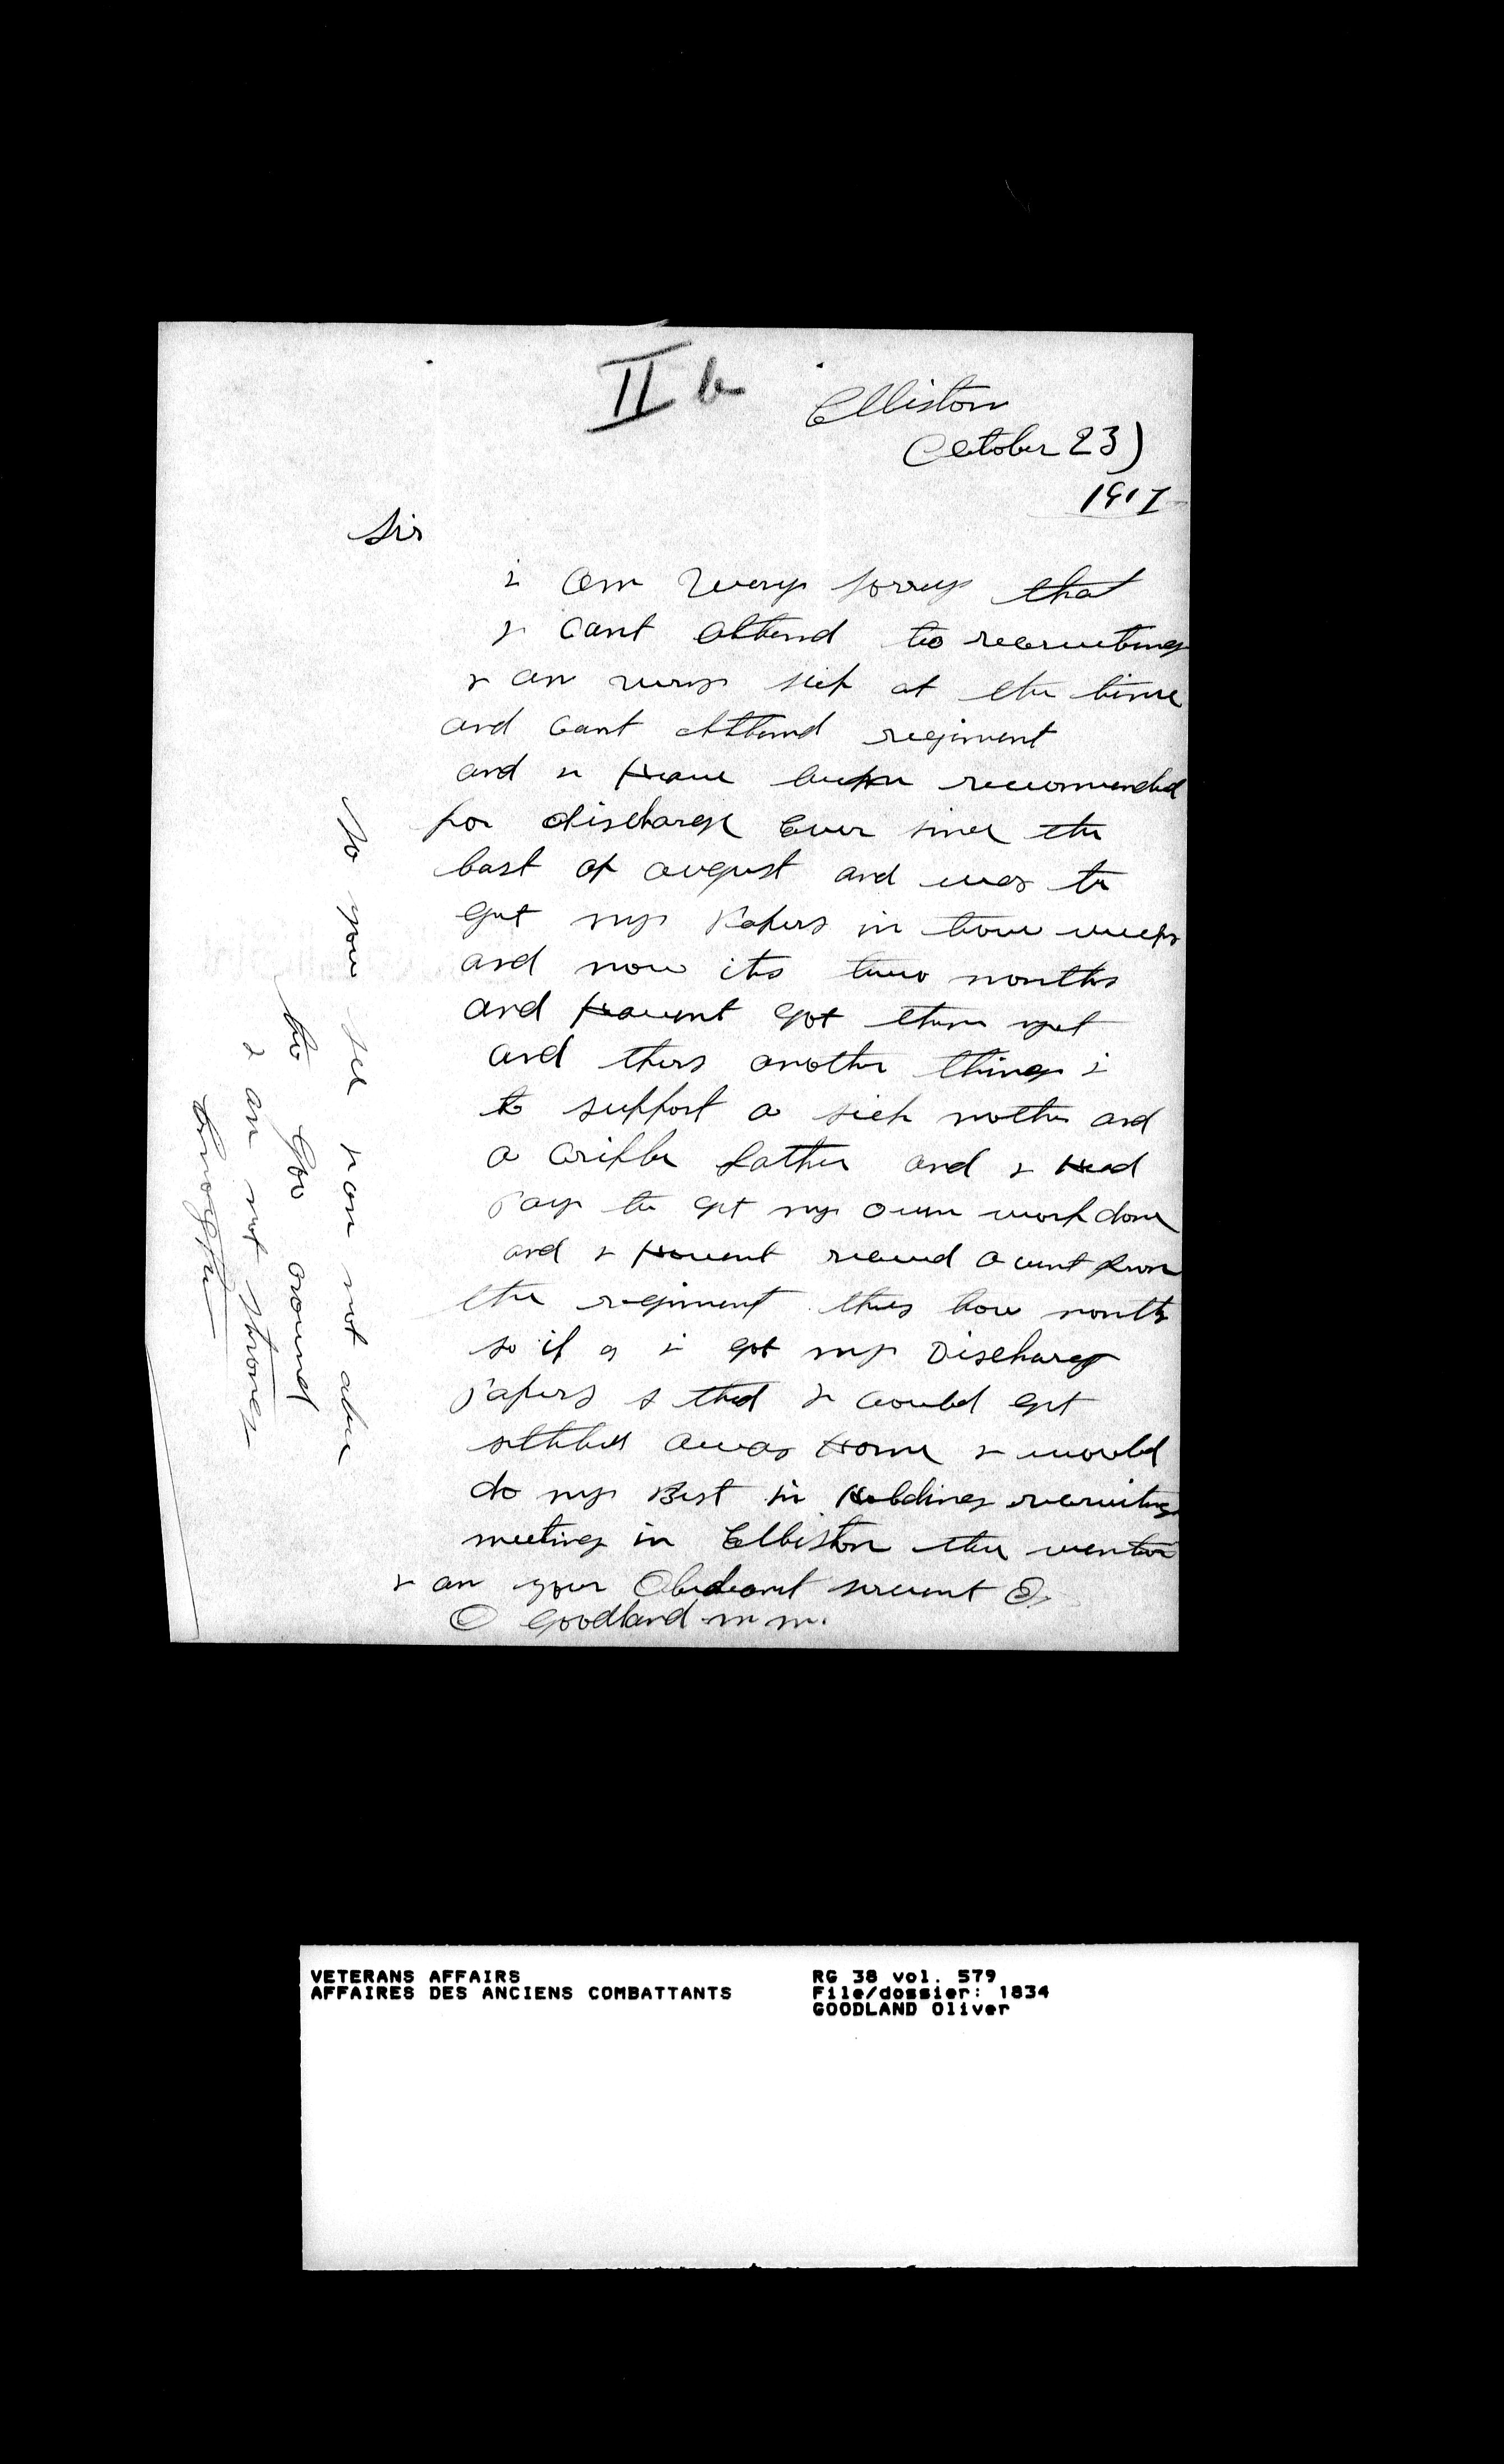 II b
Elliston
October 23)
1917
Sir
i am very sorry that
i cant attend to recruiting
i am very sick at the time
and cant attend regiment
and i have been recommended
for discharge Ever since the
last of august and was to
get my Papers in two weeks
and now its two months
and havent got them yet
and thers another thing i
to support a sick mother and
a cripple father and i had
pay to get my own work done
and i havent receved a cent from
the regiment this two month
so if i got my Discharge
papers that i could get
settled away Home i would
do my Best in Holding recruiting
meeting in Elliston the winter
i am your Obedeant servent
O Goodland m m.
So you see i am not able
to Goo around
i am not strong
Enough
VETERANS AFFAIRS
AFFAIRES DES ANCIENS COMBATTANTS
RG 38 vol. 579
File/dossier: 1834
GOODLAND Oliver